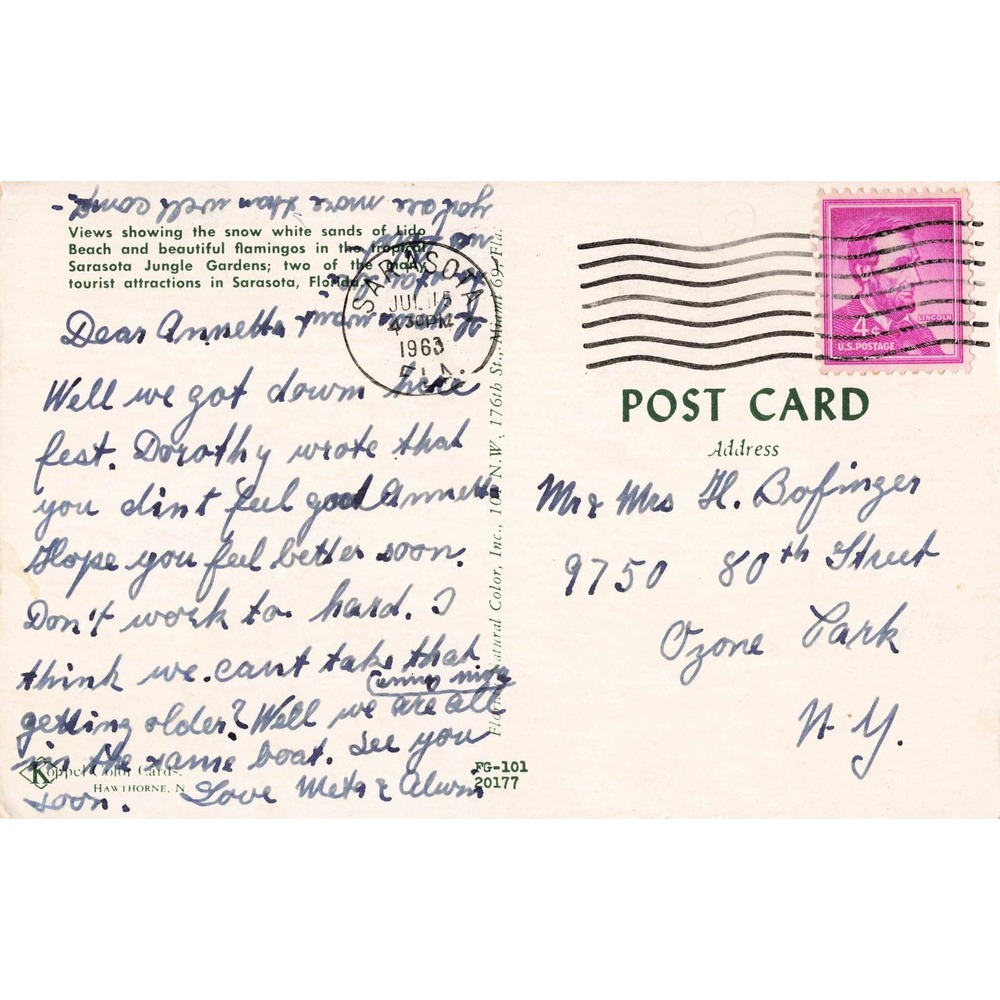 you are more than well come.
Views showing the snow white sands of Lido
Beach and beautiful flamingos in the tropical
Sarasota Jungle Gardens; two of the many
tourist attractions in Sarasota, Florida.
SARASOTA
JUL 15
4 30 PM
1963
FLA.
Dear Annetta +
Well we got down here
fest. Dorothy wrote that
you dint feel good Annetta
Hope you feel better soon.
Don't work to hard. I
think we cant take that
getting older? Well we are all
in the same boat. See you
soon. Love Meta & Alwin
Koppel Color Cards
HAWTHORNE, N
Florida Natural Color, Inc., N.W. 176th St., Miami 69, Fla.
FG-101
20177
4¢
LINCOLN
U.S. POSTAGE
POST CARD
Address
Mr & Mrs H. Bofinger
9750 80th Street
Ozone Park
N.Y.